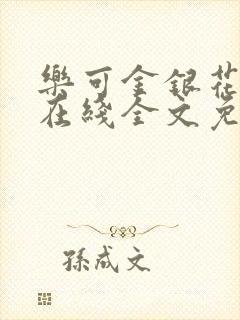 樂可金銀花
在綫全文免
孫成文